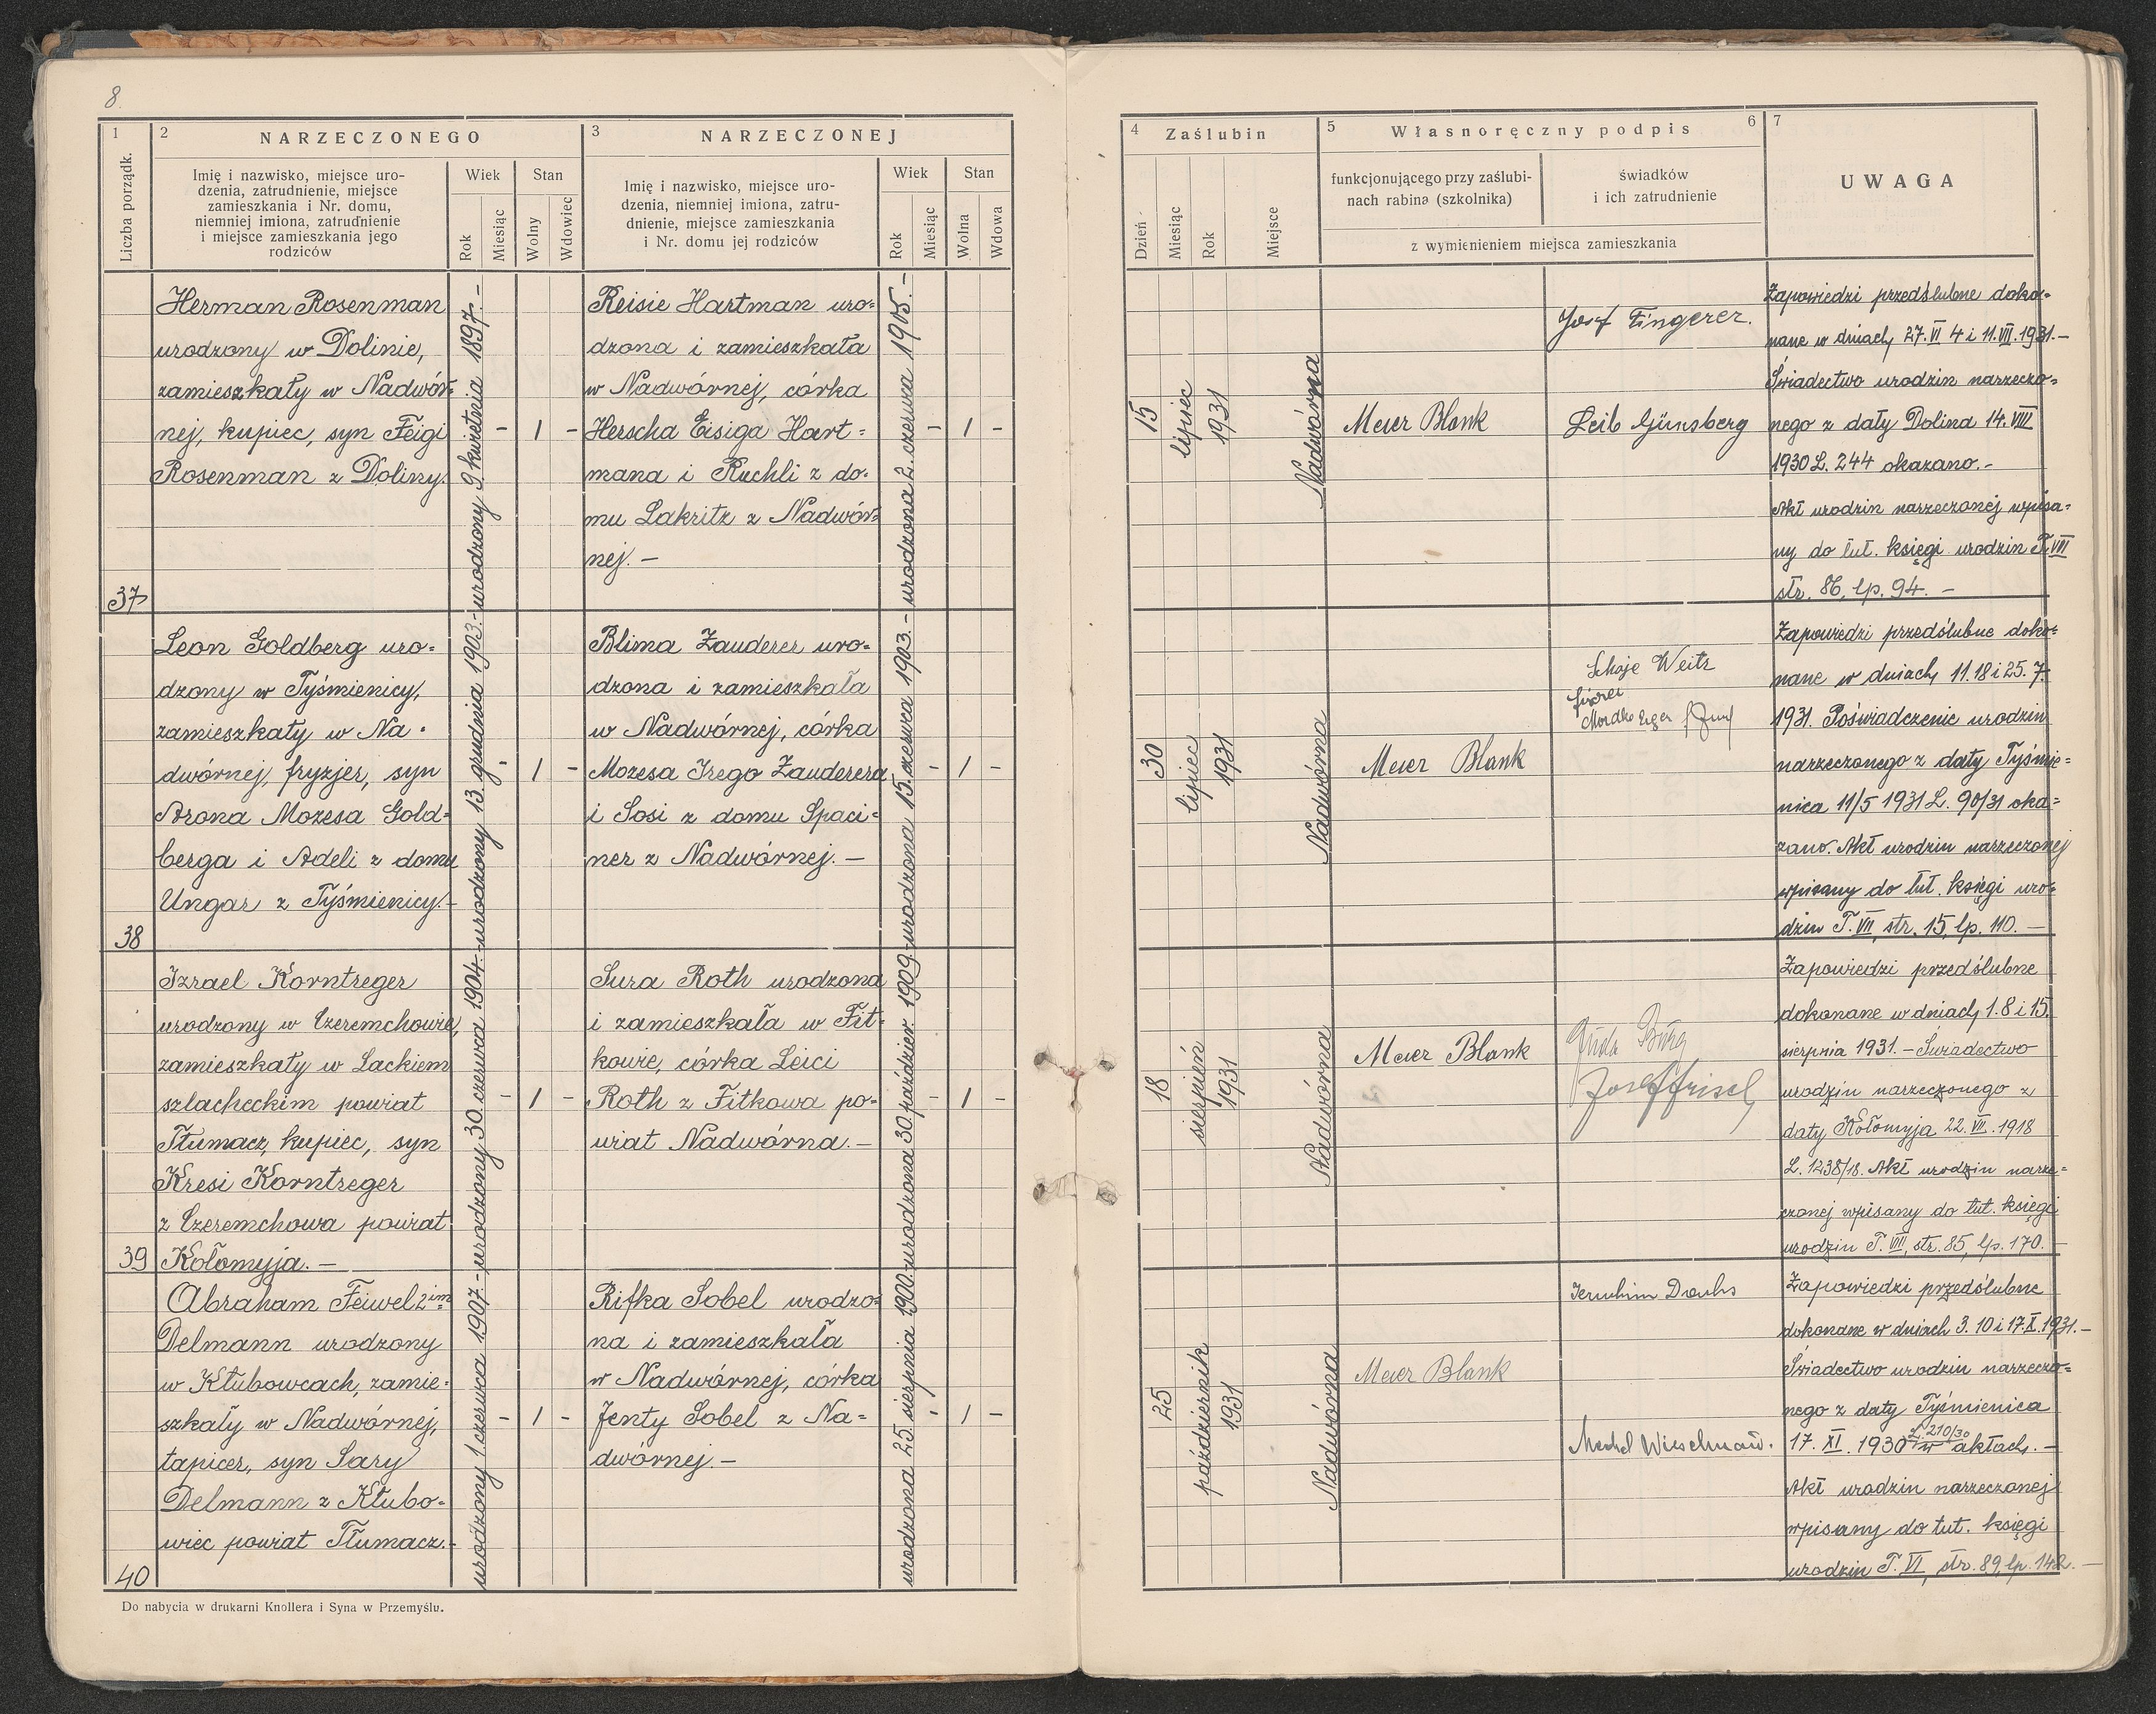 8.
1
Liczba porządk.
2
NARZECZONEGO
Imię i nazwisko, miejsce uro-
dzenia, zatrudnienie, miejsce
zamieszkania i Nr. domu,
niemniej imiona, zatrudnienie
i miejsce zamieszkania jego
rodziców
Wiek
Rok
Miesiąc
Stan
Wolny
Wdowiec
3
NARZECZONEJ
Imię i nazwisko, miejsce uro-
dzenia, niemniej imiona, zatru-
dnienie, miejsce zamieszkania
i Nr. domu jej rodziców
Wiek
Rok
Miesiąc
Stan
Wolna
Wdowa
4
Zaślubin
Dzień
Miesiąc
Rok
Miejsce
5
Własnoręczny podpis
6
funkcjonującego przy zaślubi-
nach rabina (szkolnika)
świadków
i ich zatrudnienie
z wymienieniem miejsca zamieszkania
7
UWAGA
37
Herman Rosenman
urodzony w Dolinie,
zamieszkały w Nadwór-
nej, kupiec, syn Feigi
Rosenman z Doliny.
urodzony 9 kwietnia 1897.-
- 1 -
Reisie Hartman uro-
dzona i zamieszkała
w Nadwórnej, córka
Herscha Eisiga Hart-
mana i Ruchli z do-
mu Lakritz z Nadwór-
nej.-
urodzona 2. czerwca 1905.-
- 1 -
15
lipiec
1931
Nadwórna
Meier Blank
Josef Fingerer.
Leib Günsberg
Zapowiedzi przedślubne doko-
nane w dniach 27.VI 4 i 11.VII.1931.-
Świadectwo urodzin narzeczo-
nego z daty Dolina 14.VIII
1930 L. 244 okazano.-
Akt urodzin narzeczonej wpisa-
ny do tut. księgi urodzin T.VIII
str. 86, lp. 94. -
38
Leon Goldberg uro-
dzony w Tyśmienicy,
zamieszkały w Na-
dwórnej, fryzjer, syn
Arona Mozesa Gold-
berga i Adeli z domu
Ungar z Tyśmienicy.-
urodzony 13 grudnia 1903.-
- 1 -
Blima Zauderer uro-
dzona i zamieszkała
w Nadwórnej, córka
Mozesa Izego Zauderera
i Sosi z domu Spaci-
ner z Nadwórnej.-
urodzona 15. czerwca 1903.-
- 1 -
30
lipiec
1931
Nadwórna
Meier Blank
Schaje Weitz
Mordko
Zapowiedzi przedślubne doko-
nane w dniach 11.18 i 25.7.
1931. Poświadczenie urodzin
narzeczonego z daty Tyśmie-
nica 11/5 1931 L. 90/31 oka-
zano. Akt urodzin narzeczonej
wpisany do tut. księgi uro-
dzin T. VII, str. 15, lp. 110. -
39
Izrael Korntreger
urodzony w Czeremchowie,
zamieszkały w Lackiem
szlacheckim powiat
Tłumacz, kupiec, syn
Kresi Korntreger
z Czeremchowa powiat
Kołomyja.-
urodzony 30 czerwca 1904.-
- 1 -
Sura Roth urodzona
i zamieszkała w Fit-
kowie, córka Leici
Roth z Fitkowa po-
wiat Nadwórna.-
urodzona 30 paździer. 1909.
- 1 -
18
sierpień
1931
Nadwórna
Meier Blank
Juda Burg
Josef Frisch
Zapowiedzi przedślubne
dokonane w dniach 1.8 i 15.
sierpnia 1931.- Świadectwo
urodzin narzeczonego z
daty Kołomyja 22.VII.1918
L. 1238/18. Akt urodzin narze-
czonej wpisany do tut. księgi
urodzin T. VIII, str. 85, lp. 170.-
40
Abraham Feiwel 2im
Delmann urodzony
w Kłubowcach, zamie-
szkały w Nadwórnej,
tapicer, syn Sary
Delmann z Kłubo-
wiec powiat Tłumacz.-
urodzony 1 czerwca 1907.-
- 1 -
Rifka Sobel urodzo-
na i zamieszkała
w Nadwórnej, córka
Jenty Sobel z Na-
dwórnej.-
urodzona 25. sierpnia 1900.
- 1 -
25
październik
1931
Nadwórna
Meier Blank
Mechel
Zapowiedzi przedślubne
dokonane w dniach 3.10 i 17.X.1931.-
Świadectwo urodzin narzeczo-
nego z daty Tyśmienica
17. XI. 1930 L. 210/30 w aktach.-
Akt urodzin narzeczonej
wpisany do tut. księgi
urodzin T. VI, str. 89, lp. 142.-
Do nabycia w drukarni Knollera i Syna w Przemyślu.